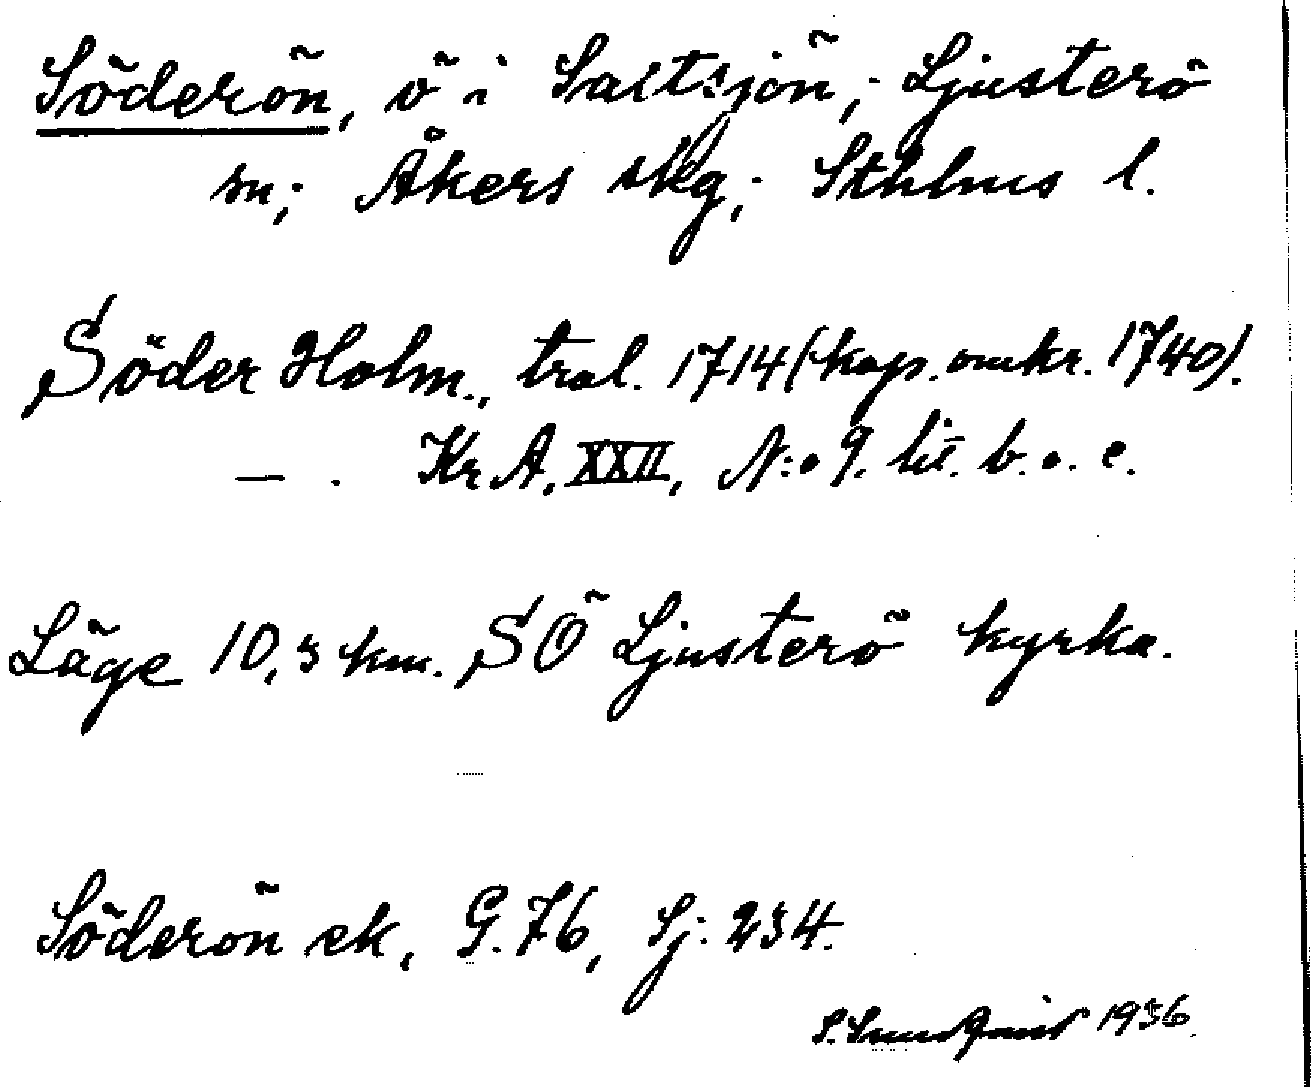 Söderön, ö i Saltsjön; Ljusterö
sn; Åkers skg; Sthlms l.
Söder Holm., tral. 1714 (kop. omkr. 1740).
— . Kr A. XXII, N:o 9. lit. b. o. c.
Läge 10,5 km. SÖ Ljusterö kyrka.
Söderön ek, G. 76, Sj: 234.
S. Sundquist 1936